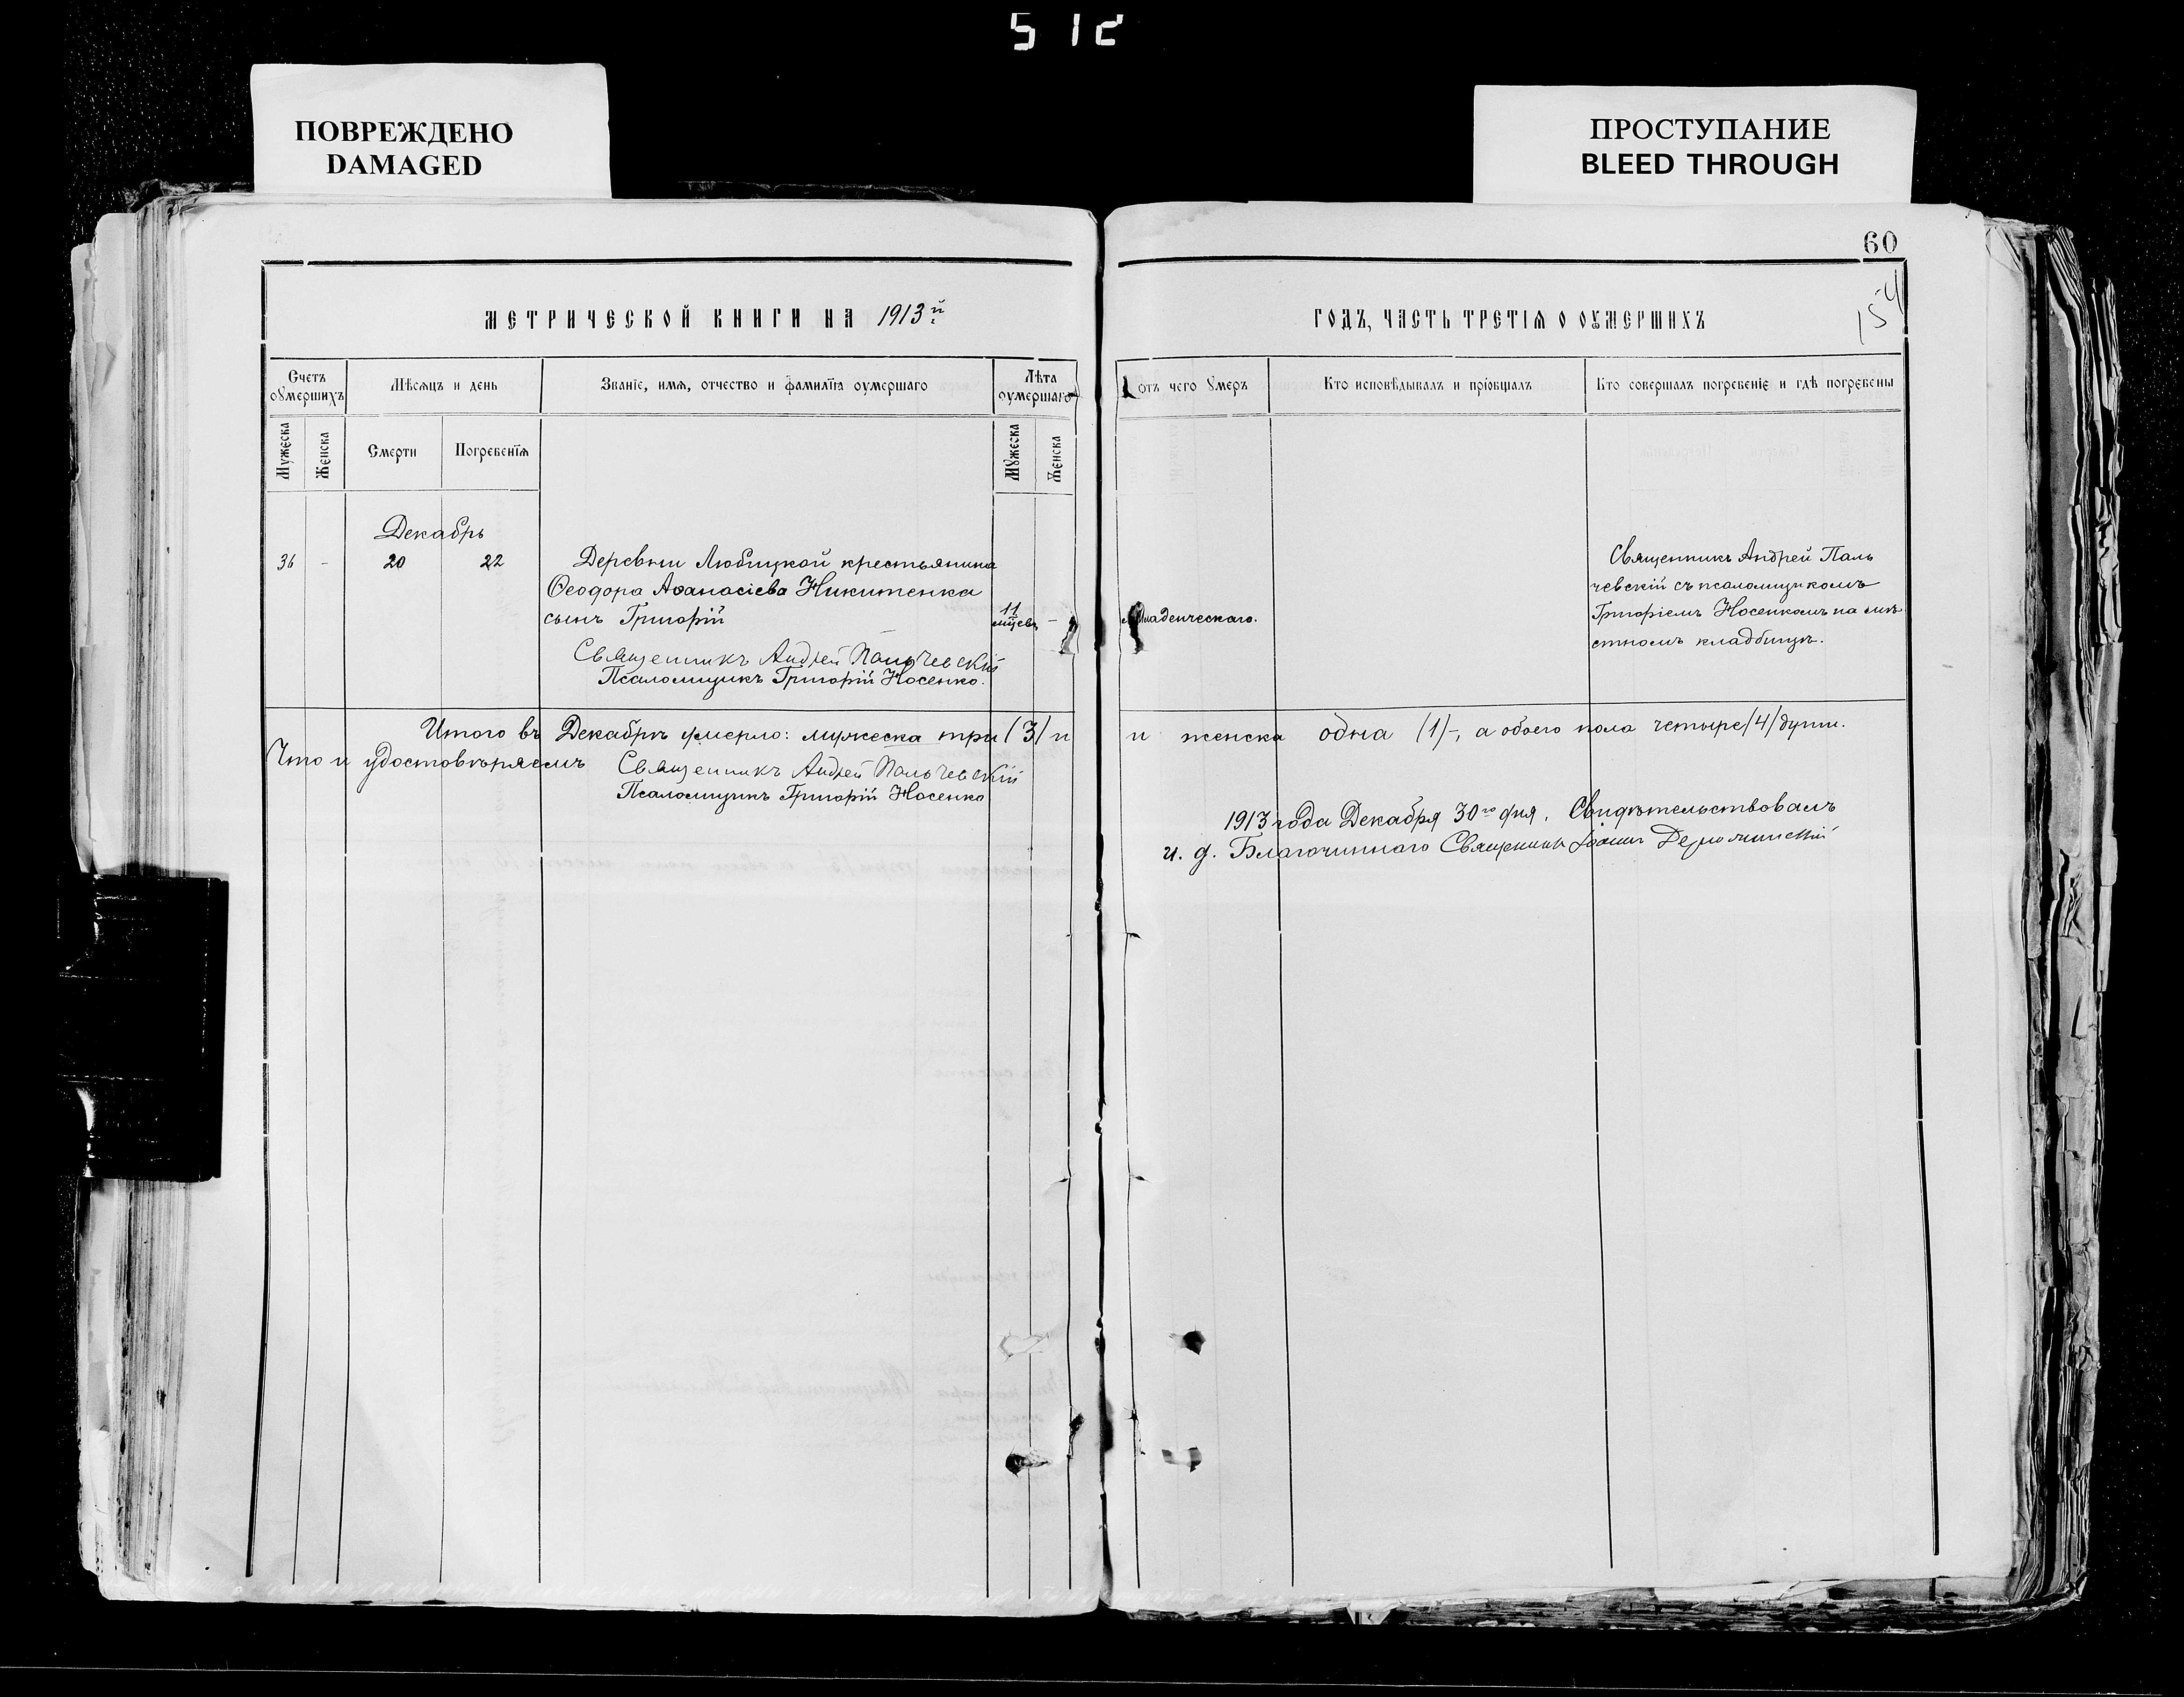 512
ПОВРЕЖДЕНО
DAMAGED
ПРОСТУПАНИЕ
BLEED THROUGH
60
154
МЕТРИЧЕСКОЙ КНИГИ НА 1913й
ГОДЪ, ЧАСТЬ ТРЕТІѦ О ОУМЕРШИХЪ
Счетъ оумершихъ
Мѣсѧцъ и день
Званіе, имѧ, отчество и фамиліѧ оумершаго
Лѣта оумершаго
Отъ чего умеръ
Кто исповѣдывалъ и пріобщалъ
Кто совершалъ погребеніе и гдѣ погребены
Мужеска
Женска
Смерти
Погребеніѧ
Мужеска
Женска
Декабрь
36 - 20 22
Деревни Любицкой крестьянина
Ѳеодора Аѳанасіева Никитенка
сынъ Григорій
11 мѣсцевъ -
Младенческаго.
Священникъ Андрей Паль
чевскій съ псаломщикомъ
Григоріемъ Носенкомъ на мѣ
стномъ кладбищѣ.
Священникъ Андрей Пальчевскій
Псаломщикъ Григорій Носенко.
Итого въ Декабрѣ умерло: мужеска три (3) и
и женска одна (1)-, а обоего пола четыре (4) души.
Что и удостовѣряемъ Священникъ Андрей Пальчевскій
Псаломщикъ Григорій Носенко
1913 года Декабря 30го дня. Свидѣтельствовалъ
и. д. Благочиннаго Священникъ Іоаннъ